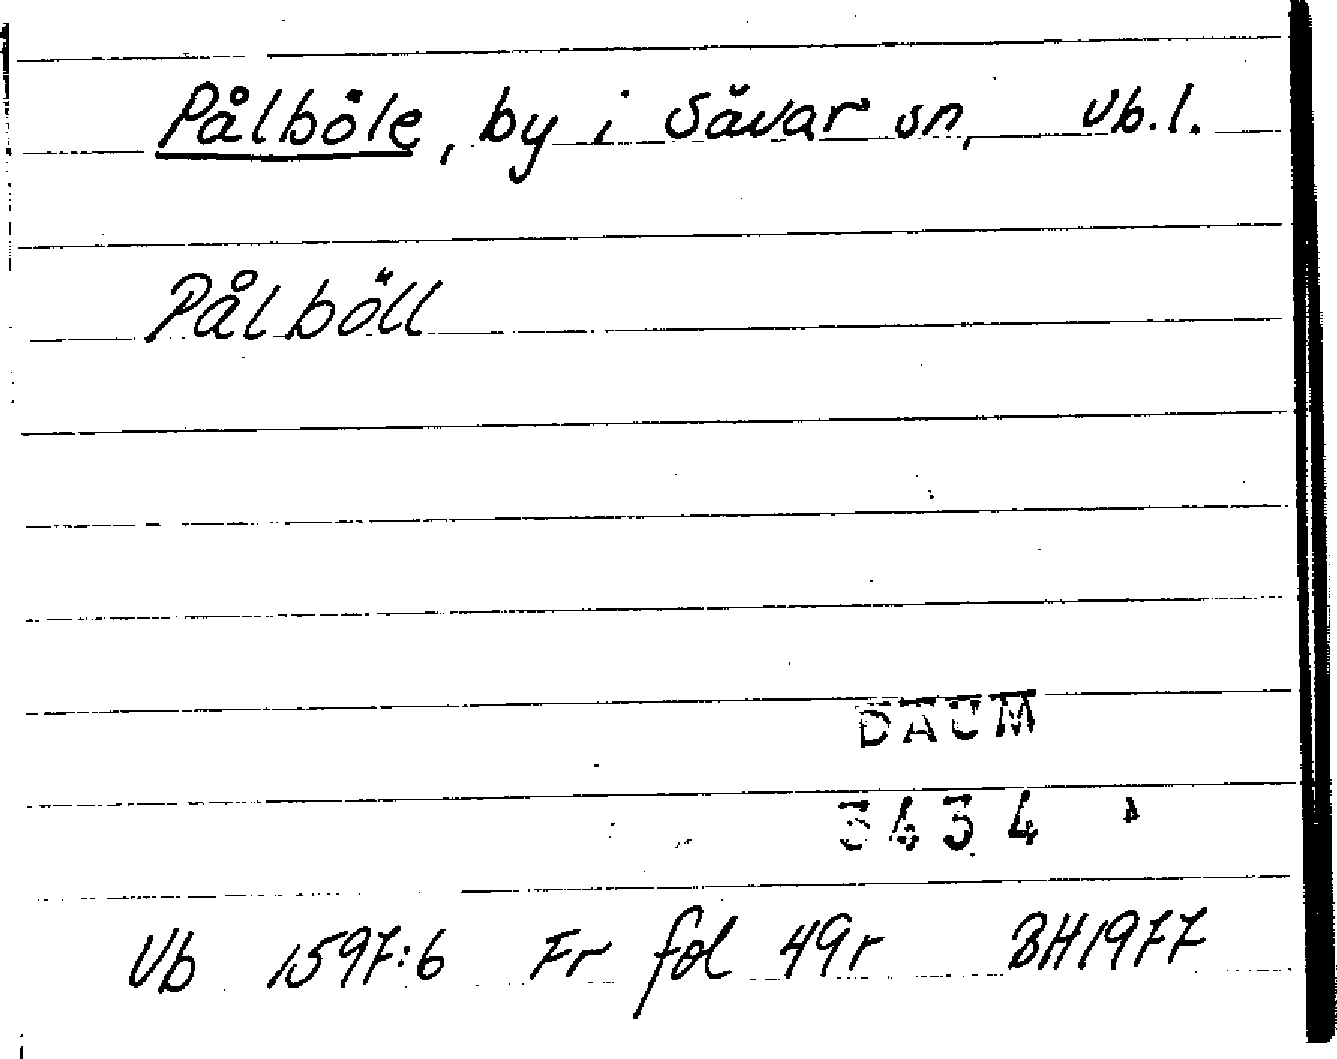 Pålböle, by i Sävar sn, Vb.l.
Pålböll
DAUM
3434
Vb 1597:6 Fr fol 49r BH1977